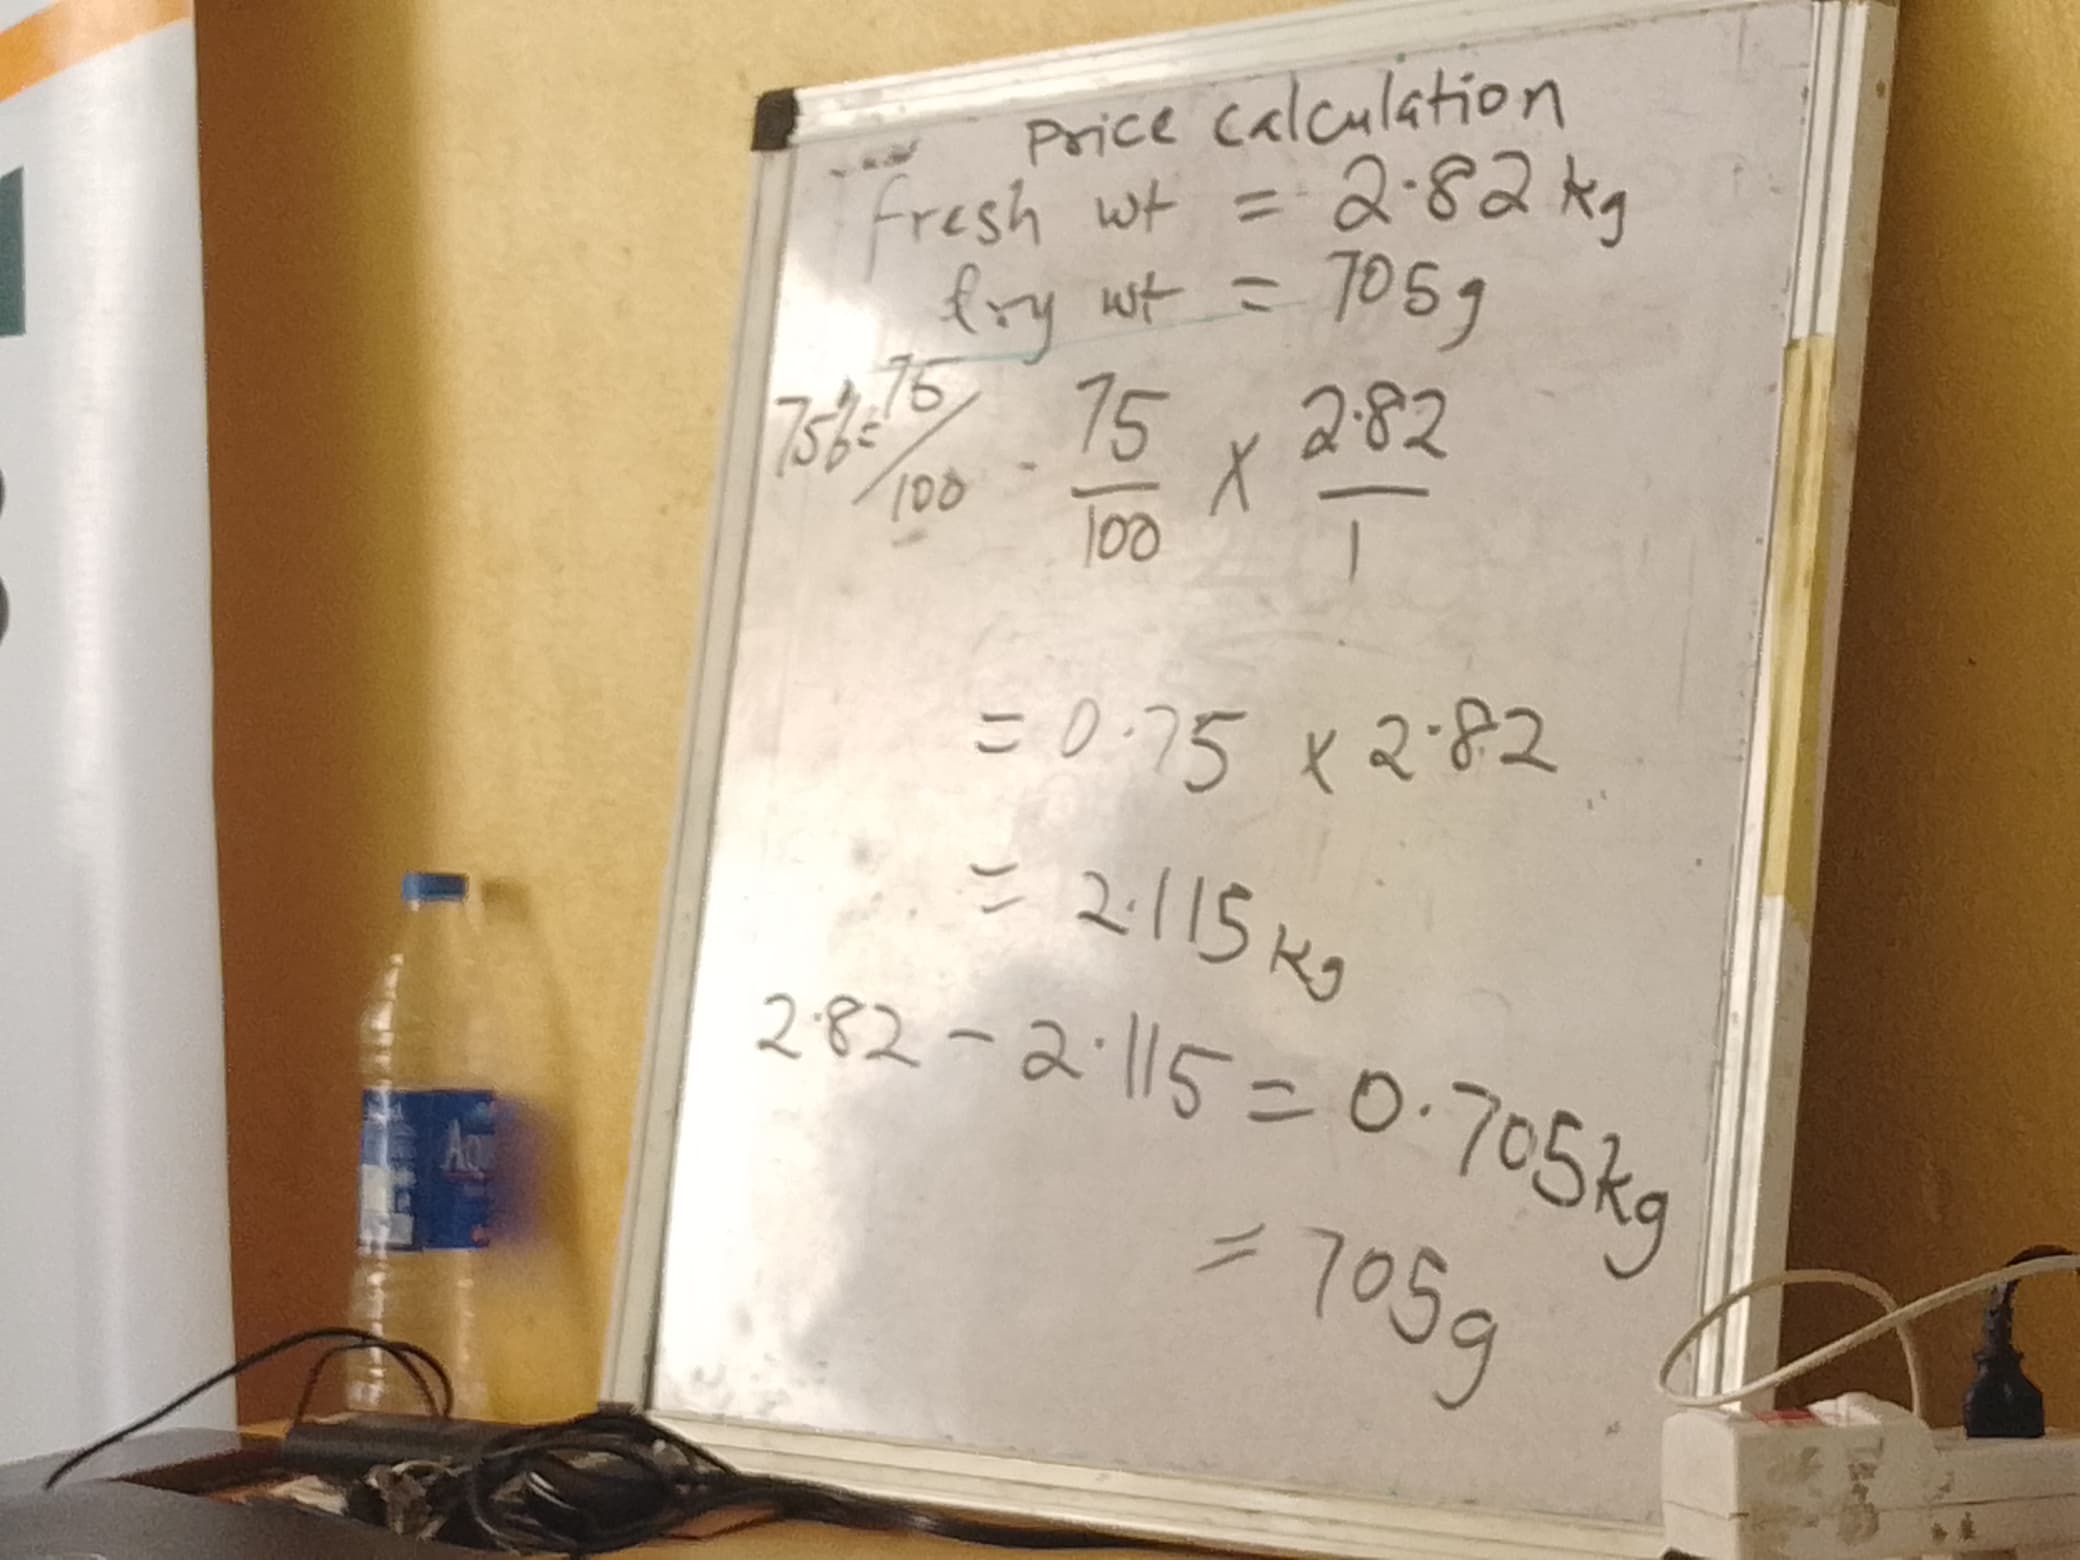 Price calculation
fresh wt = 2.82 kg
dry wt = 705g
75% = 75/100 - 75/100 x 2.82/1
= 0.75 x 2.82
= 2.115 kg
2.82 - 2.115 = 0.705kg
= 705g